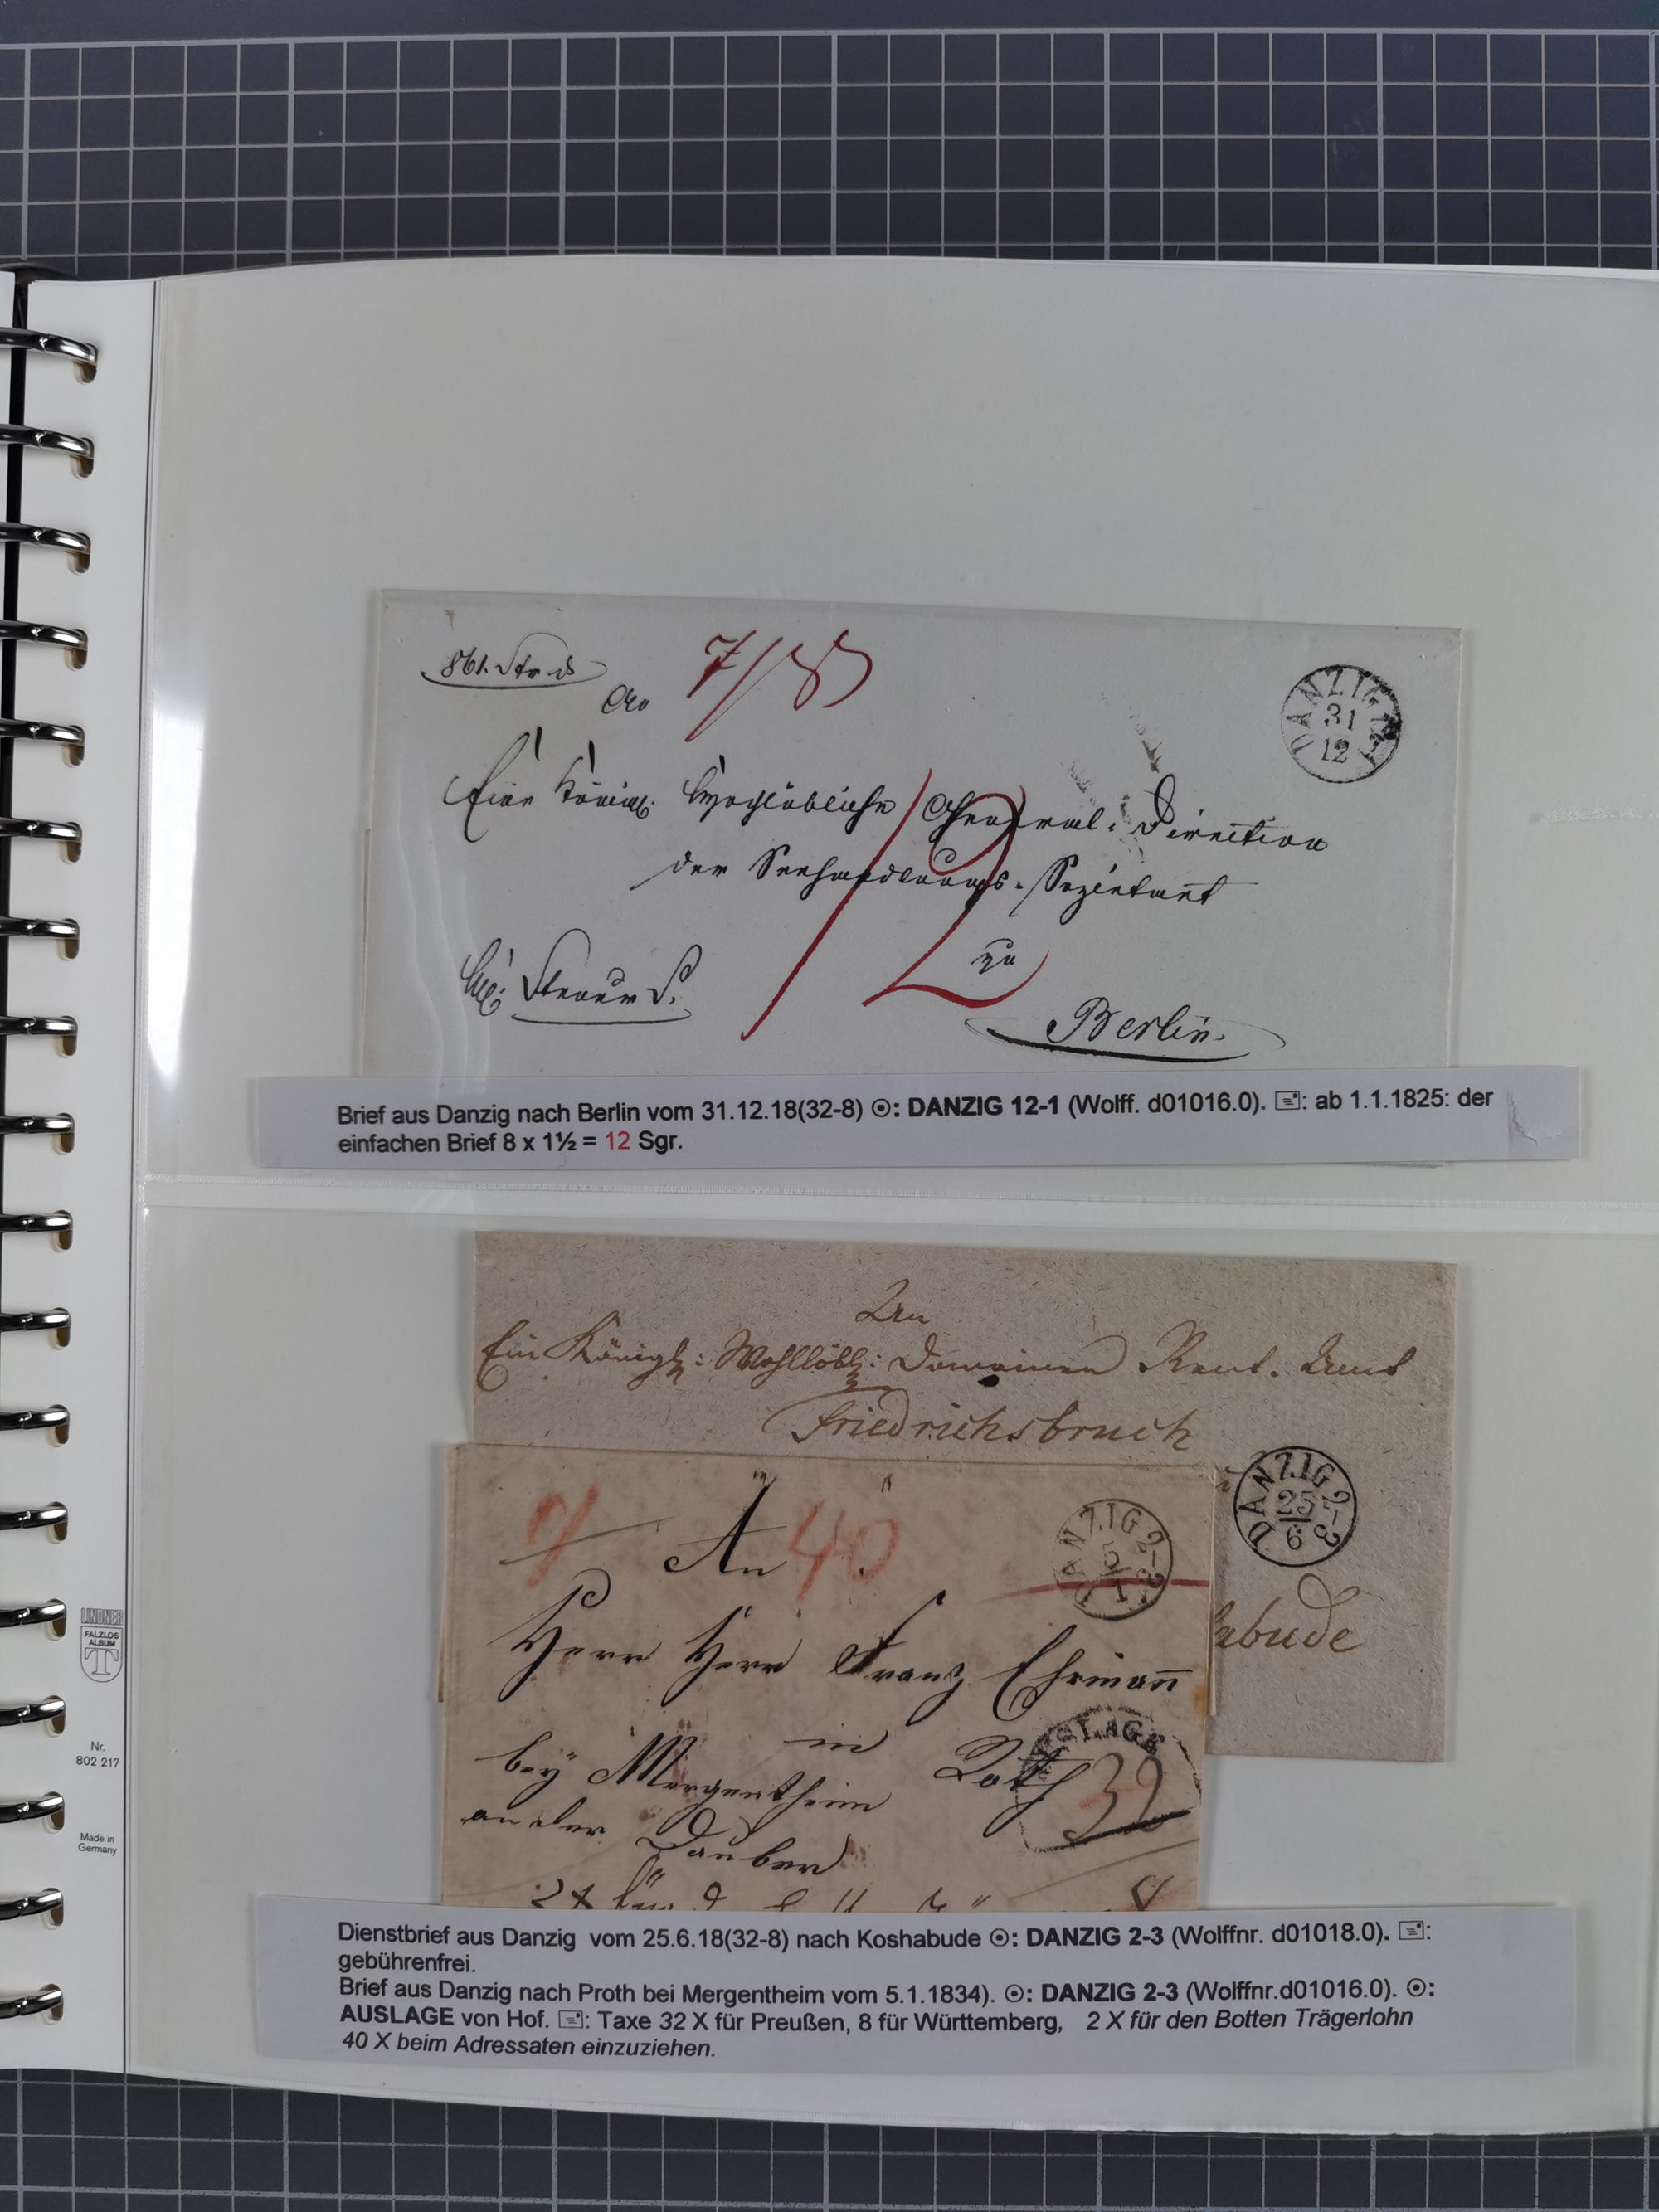 7/33
DANZIG 12-1
31
12
Eine Königl. Hochlöbliche General-Direction
der Seehandlungs-Sozietaet
12
zu
Berlin.
Brief aus Danzig nach Berlin vom 31.12.18(32-8) ⊙: DANZIG 12-1 (Wolff. d01016.0). 🖃: ab 1.1.1825: der
einfachen Brief 8 x 1½ = 12 Sgr.
An
Ein Königl: Wohllöbl: Domainen Rent. Amt
Friedrichsbruch
DANZIG 2-3
25
6
abude
An 40
DANZIG 2-3
5
1
Herrn Herrn Franz Ehrmann
in Roth
AUSLAGE
32
bey Mergentheim
an der Tauber
LINDNER
FALZLOS
ALBUM
T
Nr.
802 217
Made in
Germany
Dienstbrief aus Danzig vom 25.6.18(32-8) nach Koshabude ⊙: DANZIG 2-3 (Wolffnr. d01018.0). 🖃:
gebührenfrei.
Brief aus Danzig nach Proth bei Mergentheim vom 5.1.1834). ⊙: DANZIG 2-3 (Wolffnr.d01016.0). ⊙:
AUSLAGE von Hof. 🖃: Taxe 32 X für Preußen, 8 für Württemberg, 2 X für den Botten Trägerlohn
40 X beim Adressaten einzuziehen.